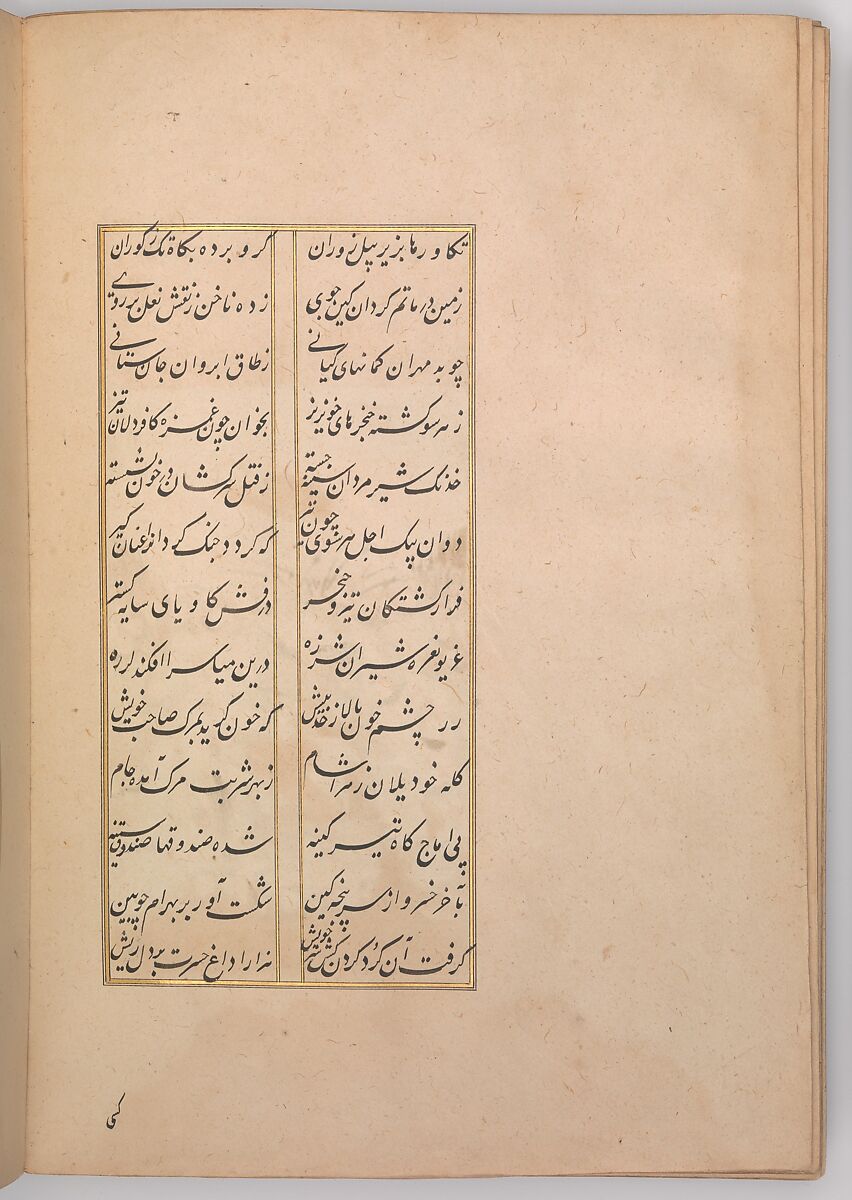 تکاورها بزیر پیل زوران گرو برده بگاه تک ز گوران
زمین در ماتم گردان کین جوی زده ناخن ز نقش نعل بر روی
چو بد مهران کمانهای کیانی ز طاق ابروان جان ستانی
ز هر سو گشته خنجرهای خونریز بخون چون غمزه کافردلان تیز
خدنک شیر مردان سینه خسته ز قتل سرکشان در خون نشسته
دوان پیک اجل هر سوی چون تیر که گردد جنک گردانرا عنان گیر
فراز کشتکان تیر و خنجر درفش کاویانی سایه گستر
غریو نعره شیران شرزه درین میناسرا افکند لرزه
زره چشم خون پالا از حد بیش که خون گرید بمرک صاحب خویش
کله خود یلان ز هر آشام ز بهر شربت مرک آمده جام
پی اماج گاه تیر کینه شده صندوقها صندوق سینه
بآخر خسرو از سرپنجه کین شکست آور بر بهرام چوبین
گرفت آن گرد گردن کش سر خویش ندارا داغ حسرت بر دل ریش
کی